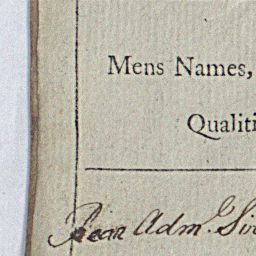 Mens Names,
Qualiti
Rear Adm.l Sir